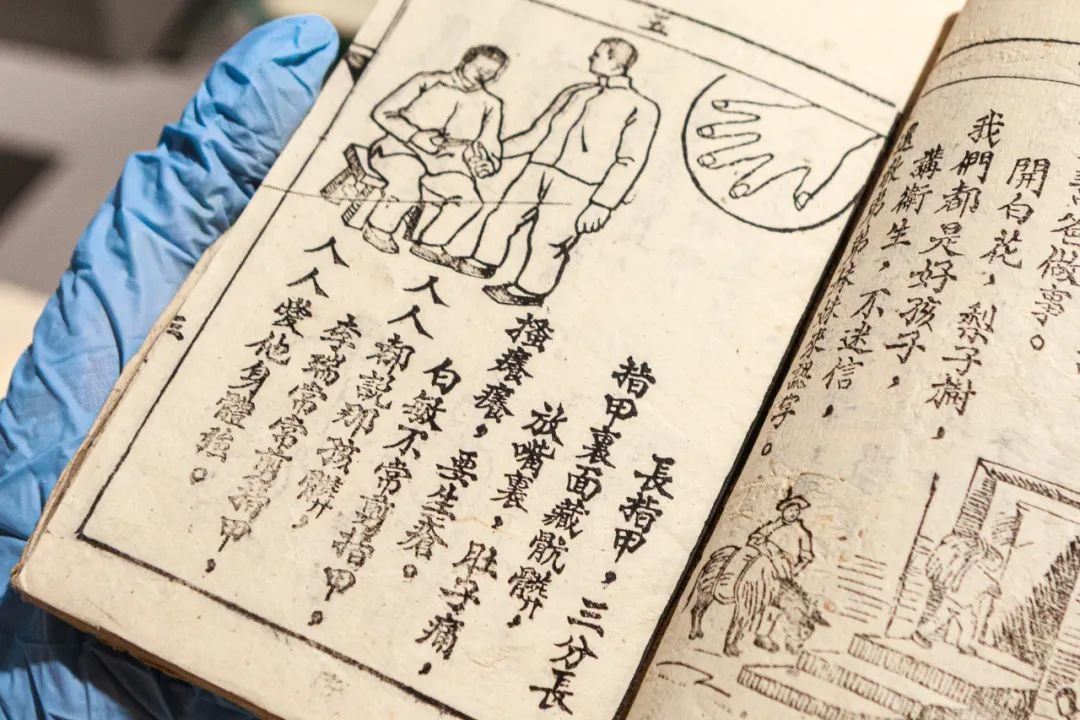 爸做事。
開白花，梨子樹，
我們都是好孩子，
講衛生，不迷信，
還教弟弟妹妹來認字。
五
長指甲，三分長
指甲裏面藏骯髒，
放嘴裏，肚子痛，
搔癢癢，要生瘡。
白敏不常剪指甲，
人人都說那孩髒，
李瑞常常剪指甲，
人人愛他身體強。
三